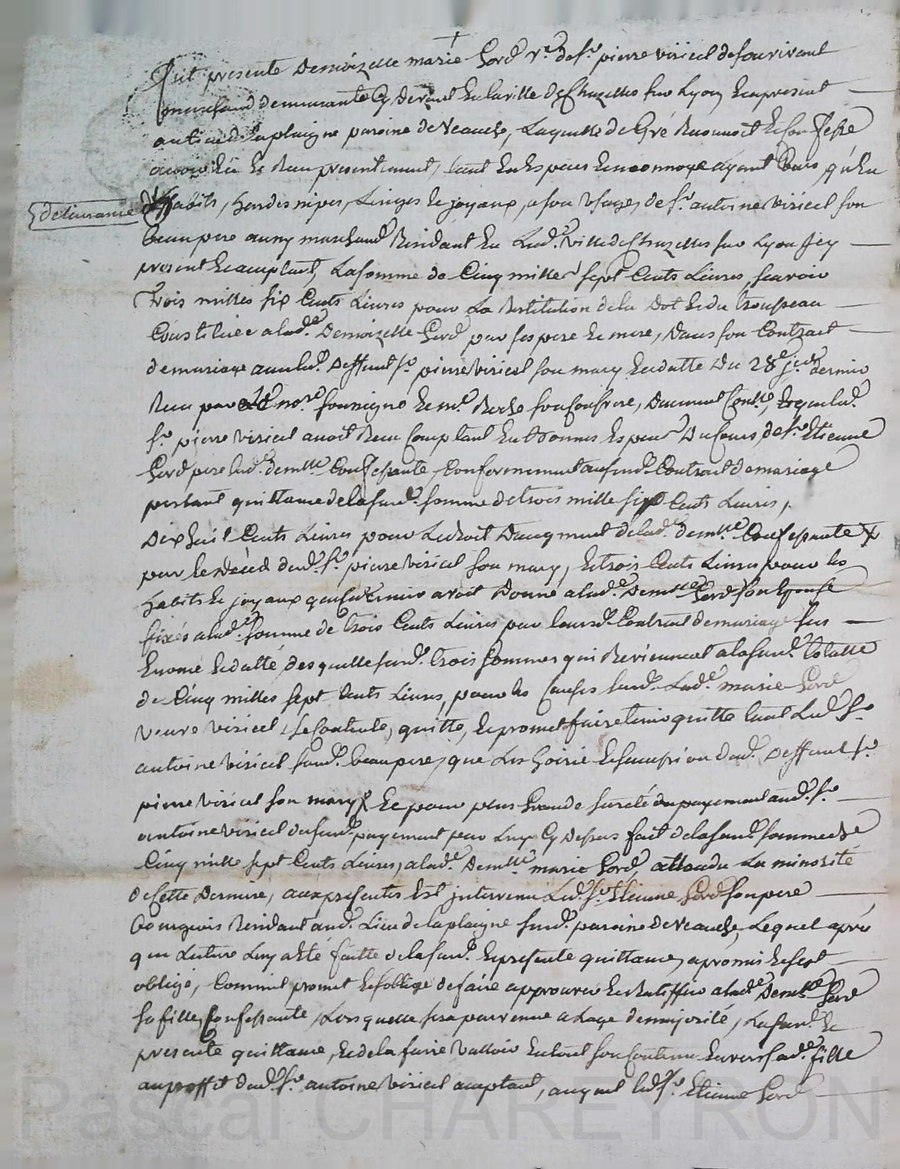 fut presente Demoizelle marie Gord v.e de S.r pierre viricel de son vivant
marchand demeurante cy devant en la ville de Chazelles sur Lyon, et a present
au lieu de la plaigne paroisse de Veauche, Laquelle de Gré Reconnoit et confesse
avoir Eu et Reçu presentement, tant en Especes et monnoye ayant Cours, qu'En
delivrance
d' habits, hardes nipes, Linges et joyaux, a son Usage, de S.r antoine viricel son
beau pere aussy marchand Residant en Lad.e ville de Chazelles sur Lyon, icy
present et acceptant, La somme de Cinq milles sept Cents Livres, scavoir
Trois milles six Cents Livres pour La Restitution de la Dot et du trousseau
Constituée a lad.e Demoizelle Gord par ses pere et mere, dans son Contract
de mariage avec led. Deffunt S.r pierre viricel son mary en datte Du 28 dernier
Reçu par no.re soussigné et m.e Roche son confrere, et que led.
S.r pierre viricel avoit Reçu Comptant en bonnes Especes Du S.r Etienne
Gord pere de lad. dem.lle Confessante, Conformement aud. Contract de mariage
portant quittance de la susd.e somme de trois mille six Cents Livres,
Dix huit Cents Livres pour Le droit D'augment de lad.e dem.lle Confessante
par le décéd dud. S.r pierre viricel son mary, et trois Cents Livres pour les
habits et joyaux que ce dernier avoit Donné a lad.e Dem.lle Gord son Epouse
fixés a lad.e somme de trois Cents Livres par leursd. Contract de mariage sus
Enoncé et datté, desquelles susd. trois sommes qui Reviennent a la susd.e totalle
de Cinq milles sept Cents Livres, pour les Causes susd. Lad.e marie Gord
veuve viricel, se contente, quitte, et promet faire tenir quitte tant Led. S.r
antoine viricel sond. beau pere, que Les hoirie et succession dud. Deffunt S.r
pierre viricel son mary, Et pour plus Grande sureté du payement aud. S.r
antoine viricel du susd. payement par Luy Cy Dessus fait de la susd. somme de
Cinq mille sept Cents Livres, a lad.e Dem.lle marie Gord, attendu La minorité
de cette Derniere, aux presentes Est intervenu Led. S.r Etienne Gord son pere
bourgeois Residant aud. Lieu de la plaigne susd. paroisse de Veauche, Lequel aprés
que Lecture Luy a été faitte de la susd.e Et presente quittance, a promis et s'est
obligé, Comme il promet et s'oblige de faire approuver et Ratiffier a lad.e Dem.lle Gord
sa fille Confessante, Lorsquelle sera parvenue a Lage de majorité, La susd.e Et
presente quittance, et de la faire valloir en tout son contenu Envers sad.e fille
au proffit dud. S.r antoine viricel acceptant, auquel led. S.r Etienne Gord
Pascal CHAREYRON